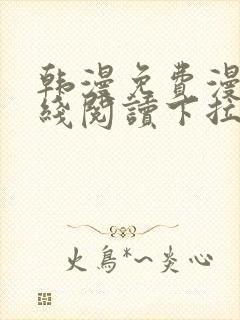 韩漫免費漫
綫閱讀下拉
火鳥*~炎心